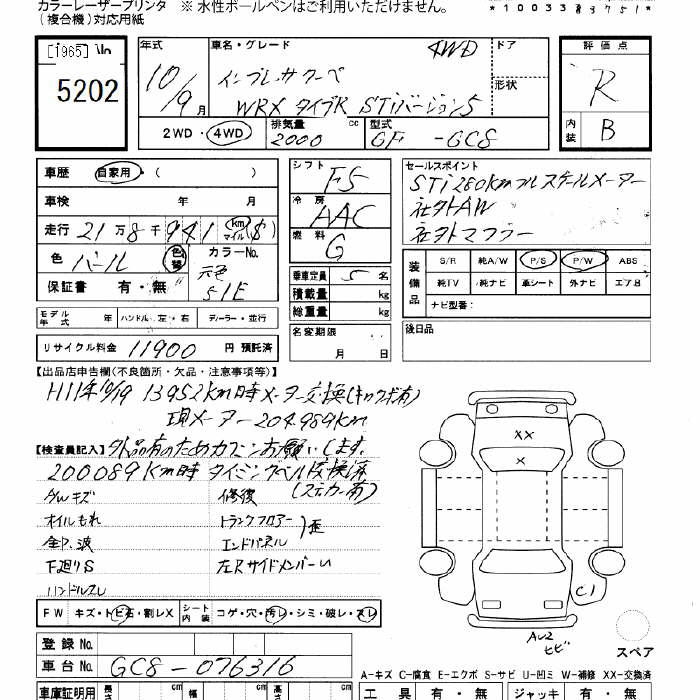 カラーレーザープリンタ ※ 水性ボールペンはご利用いただけません。
(複合機)対応用紙
[1965]
5202
年式 車名・グレード ドア 評価点
10/9月 インプレッサクーペ 4WD R
WRX タイプR STiバージョン5 形状
2WD・4WD 排気量 cc 型式 内装 B
2000 GF -GC8
車歴 自家用・( ) シフト F5 セールスポイント
STi 280kmフルスケールメーター
車検 年 月 冷房 AAC 社外AW
走行 21万8千941 km マイル ($) 燃料 G 社外マフラー
色 パール 色替 カラーNo. 元色 51E
保証書 有・無
乗車定員 5 名
積載量 kg
総重量 kg
装備品 S/R 純A/W P/S P/W ABS
純TV 純ナビ 革シート 外ナビ エアB
ナビ型番:
モデル年式 年 ハンドル 左・右 ディーラー・並行
名変期限 月 日
後日品
リサイクル料金 11900 円 預託済
【出品店申告欄(不良箇所・欠品・注意事項等)】
H11年10/19 13952km時メーター交換(キロク簿有)
現メーター204.989km
【検査員記入】外品有のためカクニンお願いします。
200089km時 タイミングベルト交換済
(ステッカー有)
AWキズ 修復
オイルもれ トランクフロアー
全P、波 エンドパネル 歪
下廻りS 左Rサイドメンバーu
ハンドルスレ
XX
X
C1
AU2
ヒビ
スペア
FW キズ・トビ石・割レX シート内装 コゲ・穴・汚レ・シミ・破レ・スレ
登録 No.
車台 No. GC8-076316
A-キズ C-腐食 E-エクボ S-サビ U-凹ミ W-補修 XX-交換済
車庫証明用 長さ cm 幅 cm 高さ cm 工具 有・無 ジャッキ 有・無